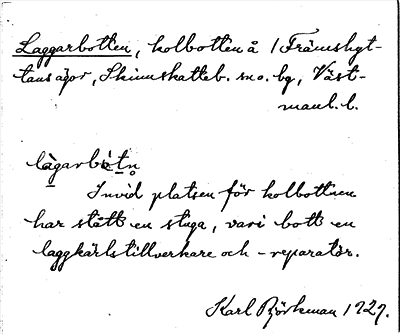 Laggarbotten, kolbotten å 1 Främshyt-
tans ägor, Skinnskatteb. sn o. bg, Väst-
manl. l.
làgarbòtn
Invid platsen för kolbottnen
har stått en stuga, vari bott en
laggkärlstillverkare och -reparatör.
Karl Björkman 1927.